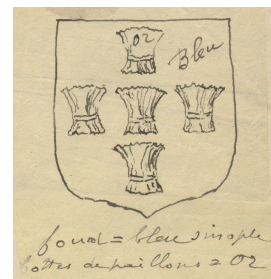 or
Bleu
fond = bleu sinople
bottes de paillons = or